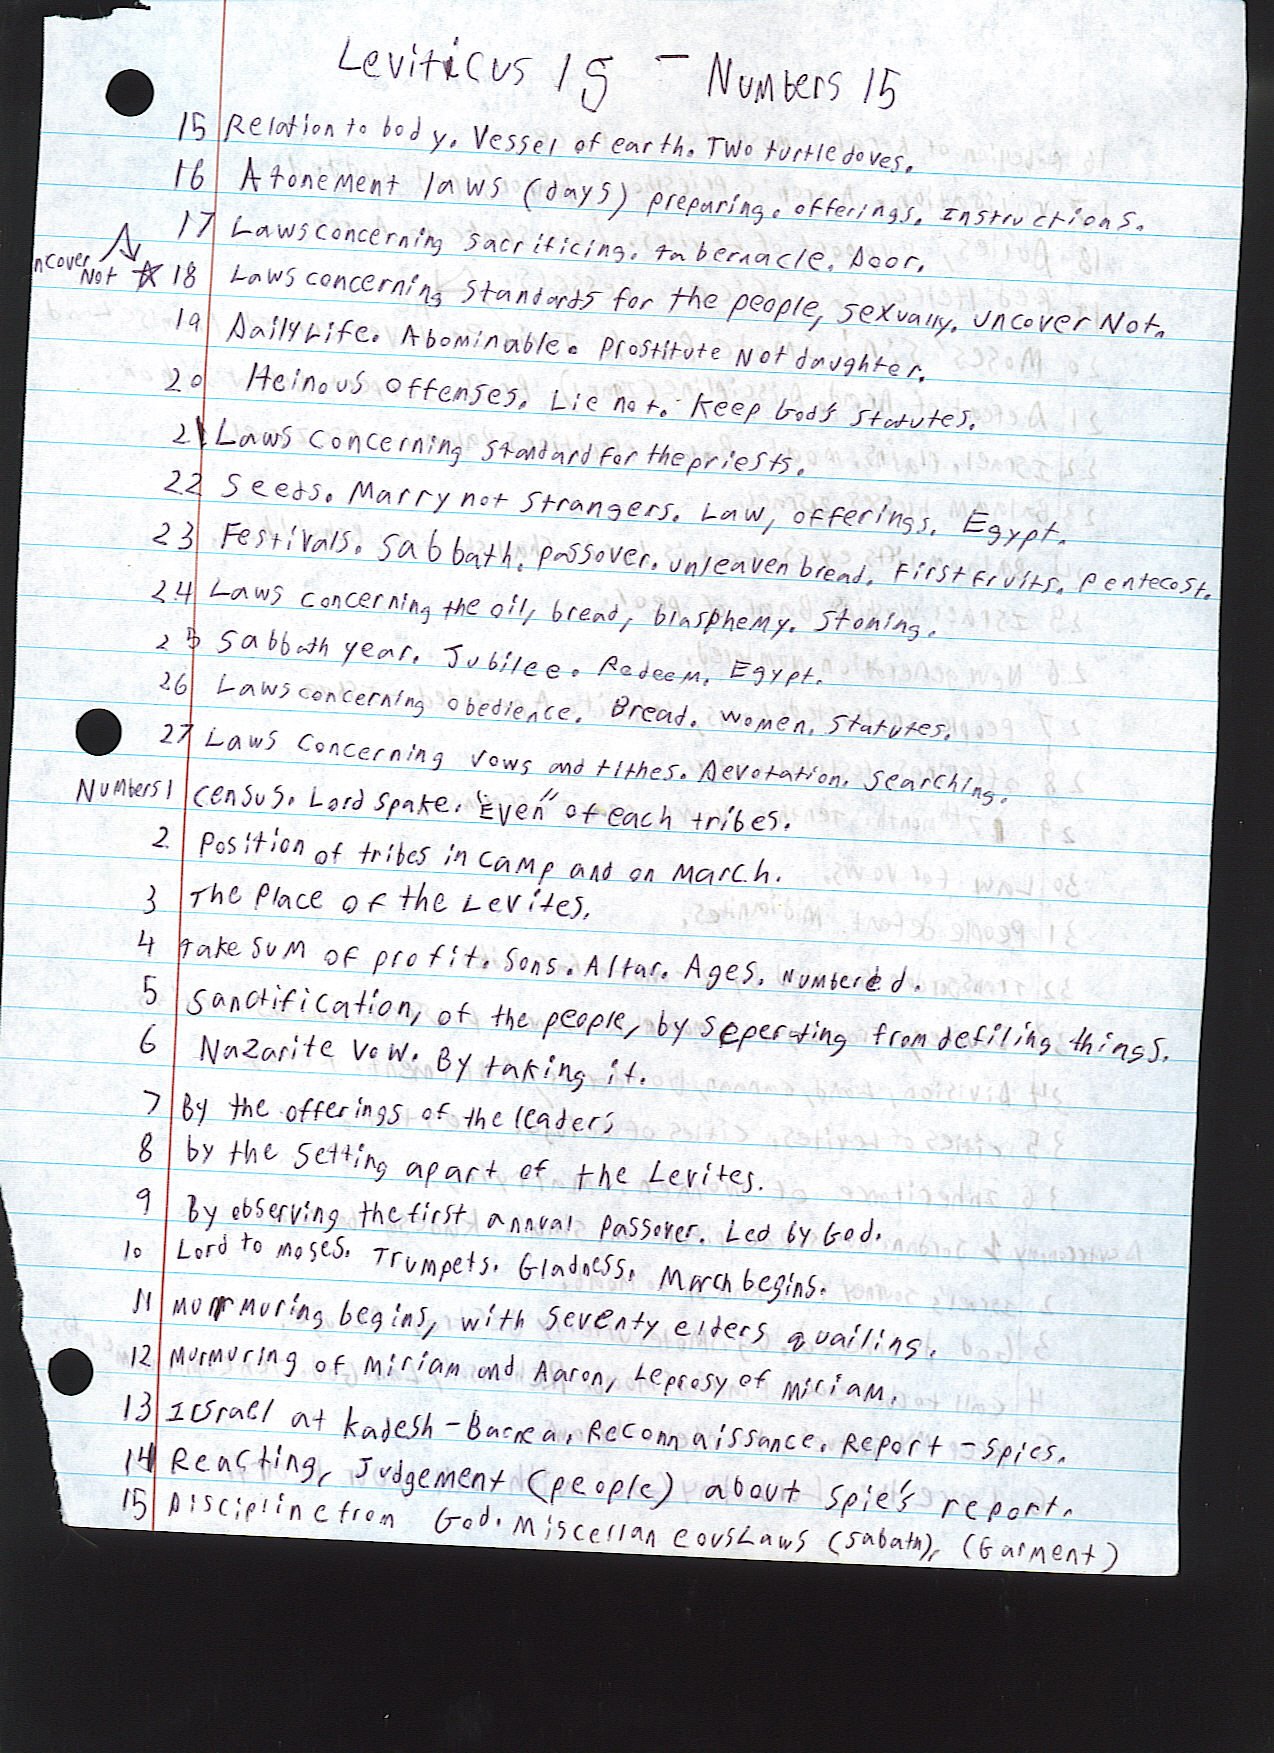 Leviticus 15 - Numbers 15
15 Relation to body. Vessel of earth. Two turtledoves.
16 Atonement laws (days) preparing. offerings. Instructions.
17 Laws concerning sacrificing. tabernacle. Door.
ncover Not ☆ 18 Laws concerning standards for the people, sexually. uncover Not.
19 Daily Life. Abominable. Prostitute Not daughter.
20 Heinous offenses. Lie not. Keep God's statutes.
21 Laws concerning standard for the priests.
22 Seeds. Marry not strangers. Law, offerings. Egypt.
23 Festivals. Sabbath. passover. unleaven bread. First fruits. Pentecost.
24 Laws concerning the oil, bread, blasphemy. Stoning.
25 Sabbath year. Jubilee. Redeem. Egypt.
26 Laws concerning obedience. Bread. women. statutes.
27 Laws concerning vows and tithes. Devotation. searching.
Numbers 1 census. Lord spake. "Even" of each tribes.
2 Position of tribes in camp and on march.
3 The Place of the Levites.
4 take sum of profit. Sons. Altar. Ages. numbered.
5 Sanctification, of the people, by seperating from defiling things.
6 Nazarite vow. By taking it.
7 By the offerings of the leaders
8 by the setting apart of the Levites.
9 By observing the first annual passover. Led by God.
10 Lord to moses. Trumpets. Gladness. March begins.
11 murmuring begins, with seventy elders quailing.
12 murmuring of Miriam and Aaron, Leprosy of Miriam.
13 Israel at Kadesh-Barnea. Reconnaissance. Report - spies.
14 Reacting, Judgement (people) about spie's report.
15 Discipline from God. Miscellaneous Laws (sabath), (Garment)